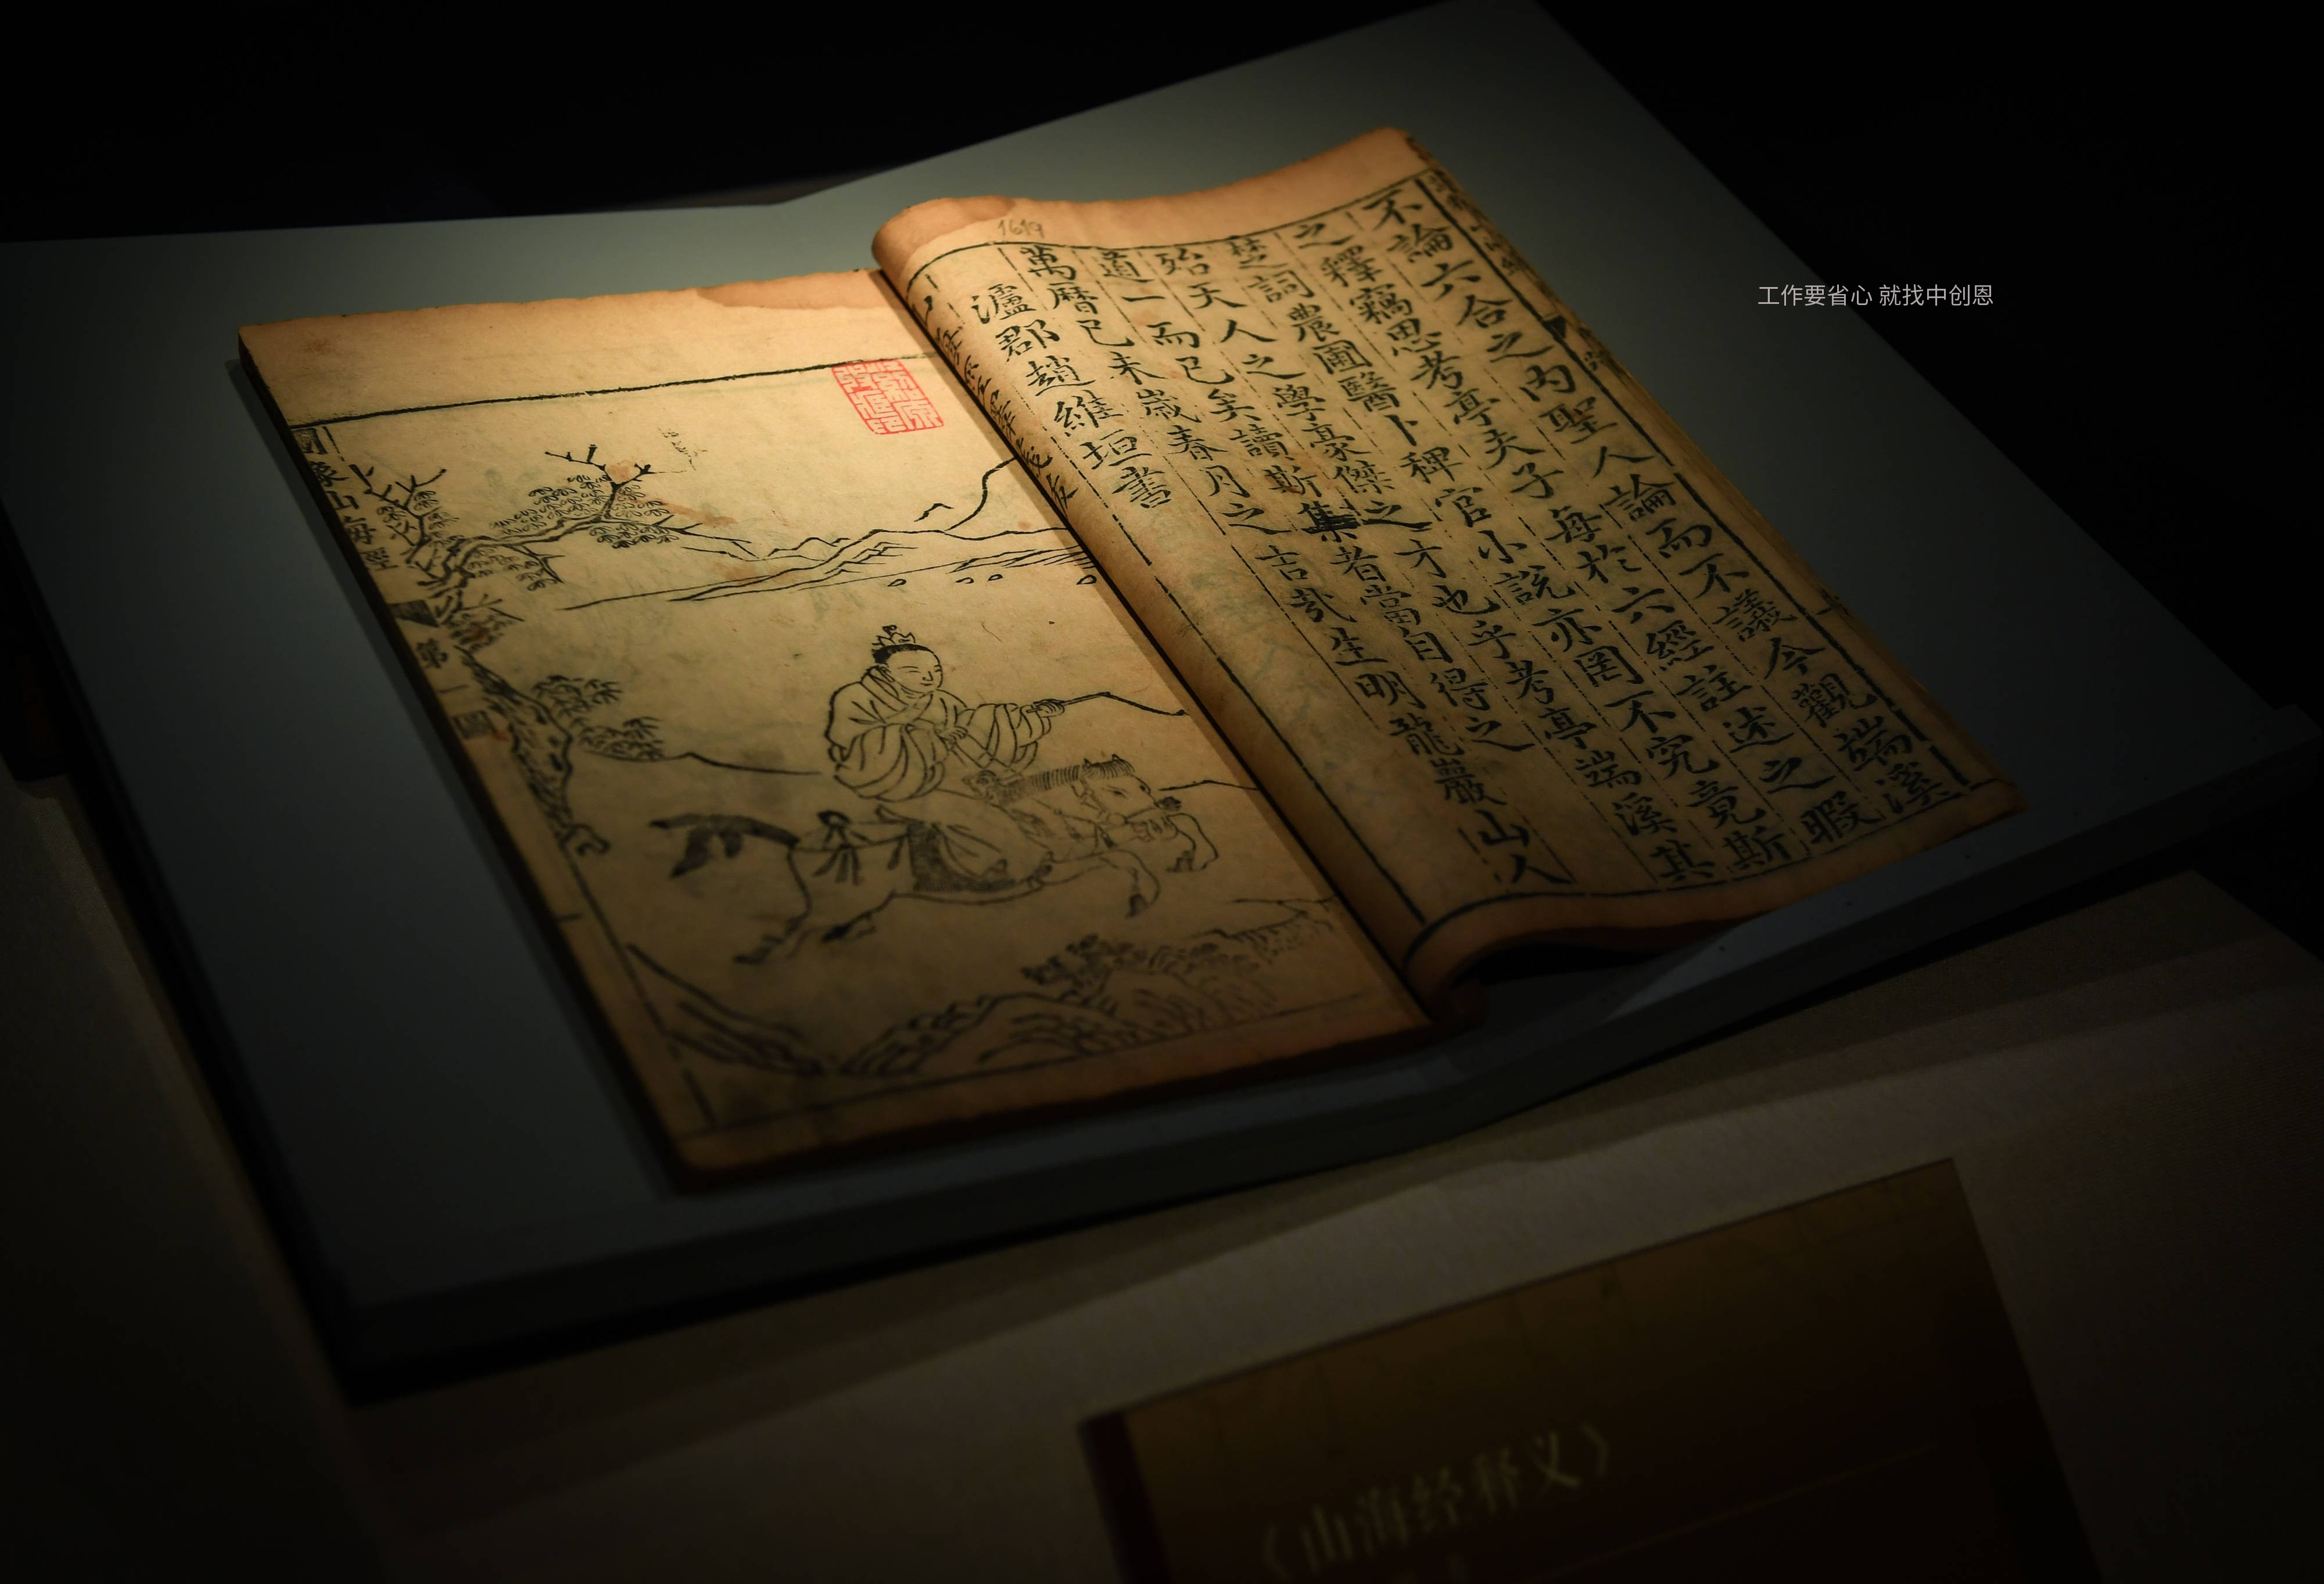 1619
不論六合之內聖人論而不議今觀端溪
之釋竊思考亭夫子每於六經註述之暇
楚詞農圃醫卜稗官小説亦罔不究竟斯
殆天人之學豪傑之才也乎考亭端溪其
道一而已矣讀斯集者當自得之
萬曆已未歲春月之吉哉生明龍巖山人
瀘郡趙維垣書
圖像山海經
第一圖
工作要省心 就找中创恩
《山海经释义》